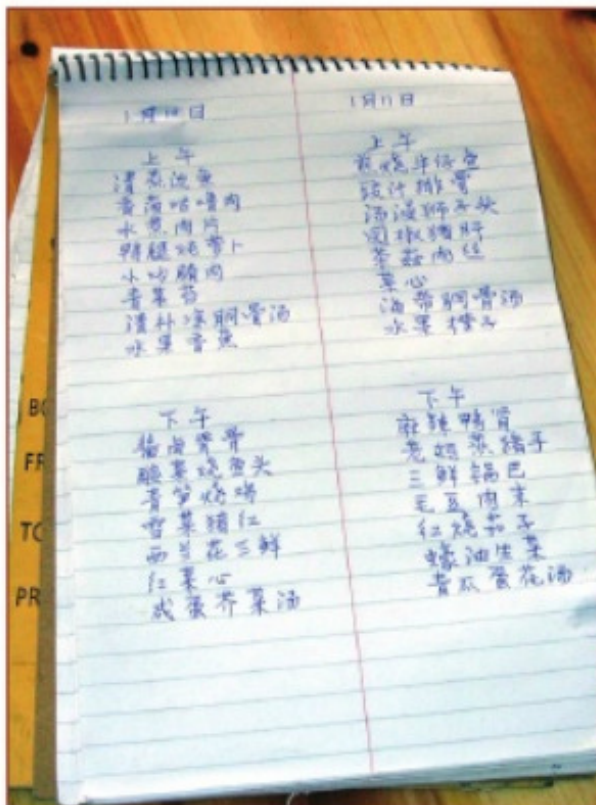 1月10日
上午
清蒸边鱼
香菇咕噜肉
水煮肉片
鸭腿炖萝卜
小炒腊肉
青菜苔
清补凉胴骨汤
水果香蕉
下午
酱卤脊骨
酸菜烧鱼头
青笋烧鸡
雪菜猪红
西兰花三鲜
红菜心
咸蛋芥菜汤
1月11日
上午
烧牛仔鱼
豉汁排骨
汤浸狮子头
圆椒猪肝
茶菇肉丝
菜心
海带胴骨汤
水果橙子
下午
麻辣鸭肾
老妈蒸猪手
三鲜锅巴
毛豆肉末
红烧茄子
蠔油生菜
青瓜蛋花汤
BO
FR
TO
PR